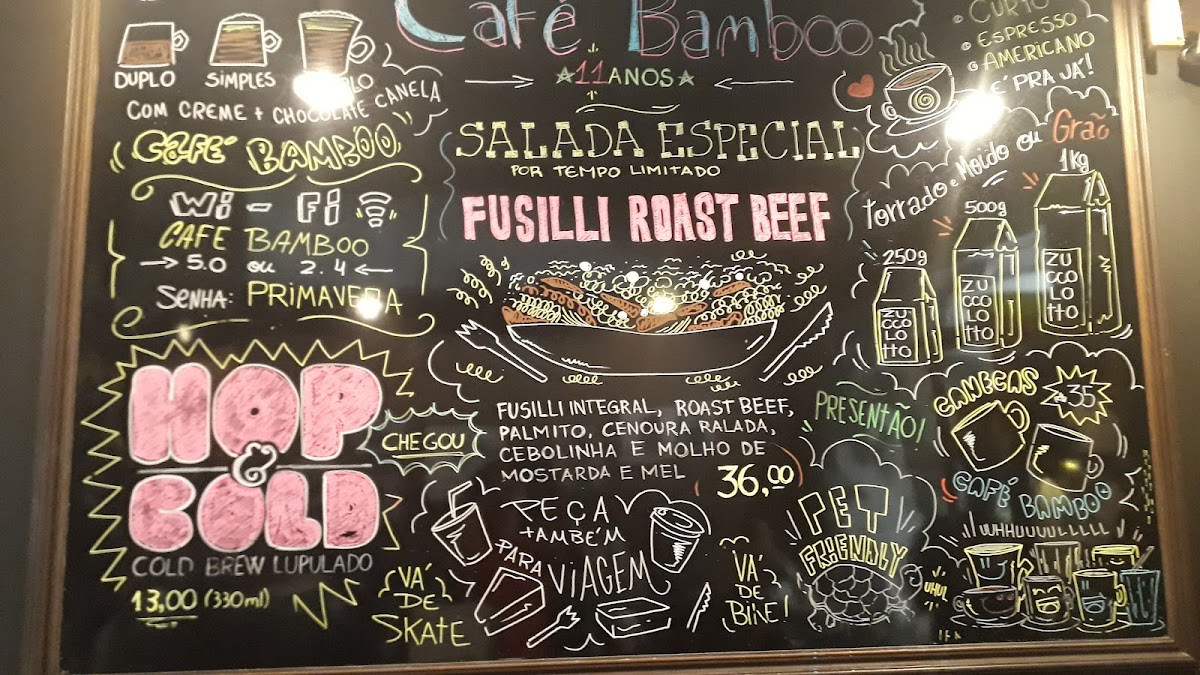 Café Bamboo
★11 ANOS★
DUPLO
SIMPLES
COM CREME + CHOCOLATE CANELA
CAFÉ BAMBOO
Wi-Fi
CAFE BAMBOO
5.0 ou 2.4
SENHA: PRIMAVERA
HOP
&
COLD
COLD BREW LUPULADO
13,00 (330ml)
CHEGOU
VÁ
DE
SKATE
SALADA ESPECIAL
POR TEMPO LIMITADO
FUSILLI ROAST BEEF
FUSILLI INTEGRAL, ROAST BEEF,
PALMITO, CENOURA RALADA,
CEBOLINHA E MOLHO DE
MOSTARDA E MEL
36,00
PEÇA
TAMBÉM
PARA VIAGEM
VÁ
DE
BIKE!
CURTO
ESPRESSO
AMERICANO
É PRA JÁ!
Torrado e Moído ou Grão
250g
500g
1kg
ZUCCOLOTTO
ZUCCOLOTTO
ZUCCOLOTTO
PRESENTÃO!
CANECAS
35
CAFÉ BAMBOO
PET
FRIENDLY
WHHUUUULLLLL
UHUL